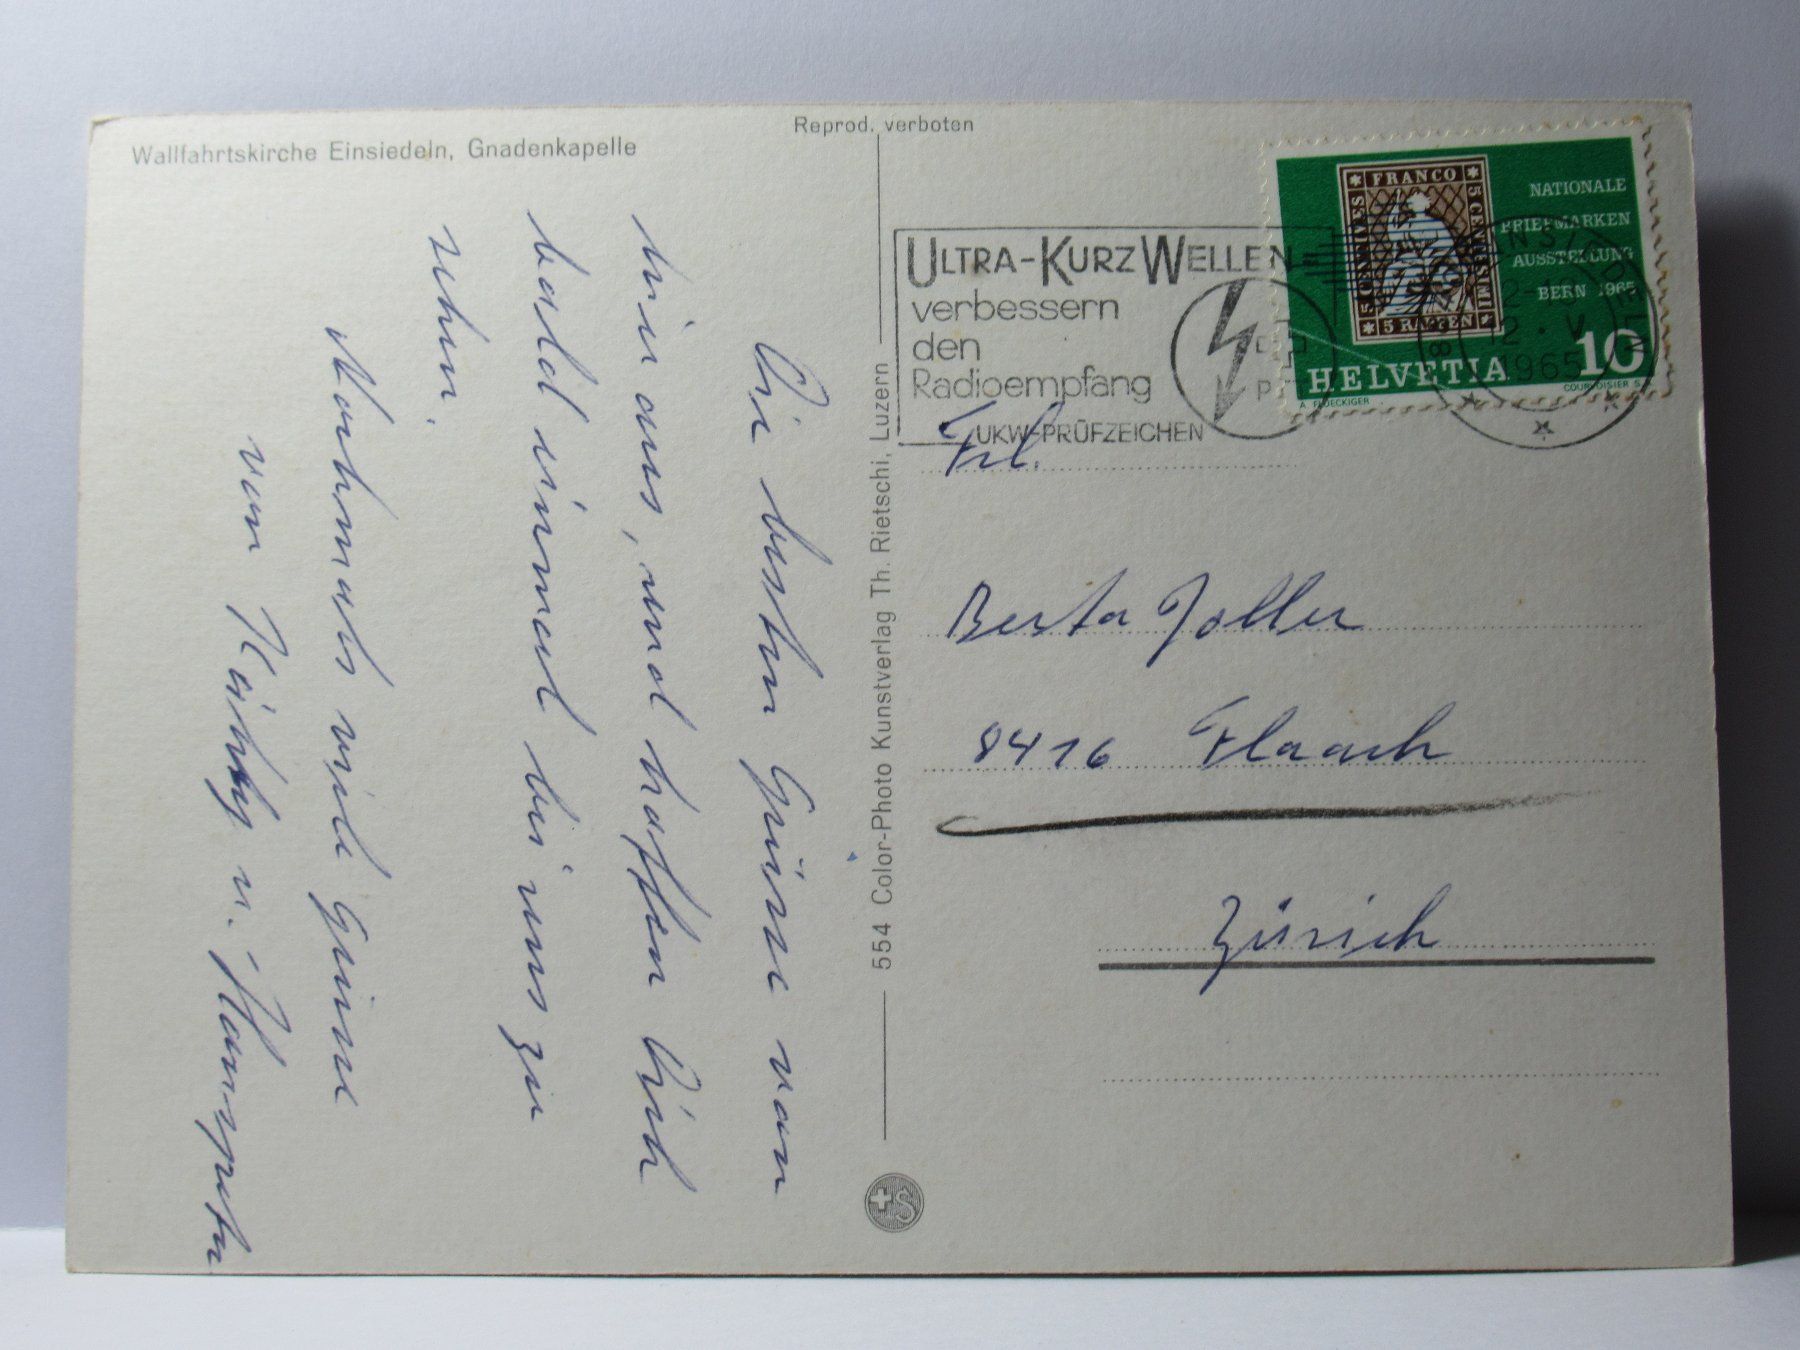 Wallfahrtskirche Einsiedeln, Gnadenkapelle
Reprod. verboten
Die besten Grüsse von
hier aus, und hoffen Dich
bald einmal bei uns zu
sehen.
Nochmals viele Grüsse
von Käthy u. Hanspeter
554 Color-Photo Kunstverlag Th. Rietschi, Luzern
+S
ULTRA-KURZWELLEN
verbessern
den
Radioempfang
UKW-PRÜFZEICHEN
FRANCO
5 CENTIMES
5 CENTESIMI
5 RAPPEN
NATIONALE
BRIEFMARKEN
AUSSTELLUNG
BERN 1965
HELVETIA 10
COURVOISIER S.
EINSIEDELN
12. V.
1965
Frl.
Berta Joller
8416 Flaach
Zürich